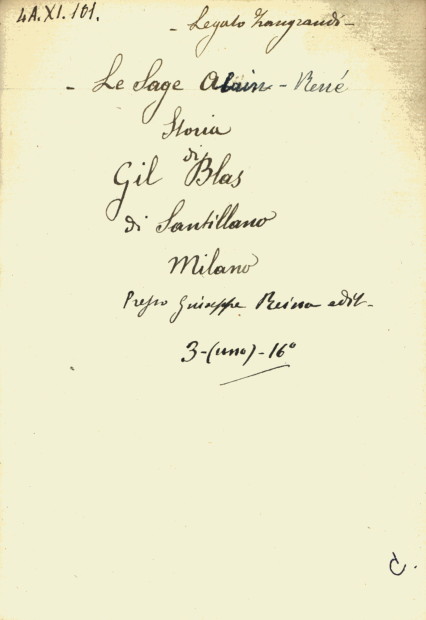 4A.XI.101.
- Legato Zangrandi -
- Le Sage Alain - René
Storia
di
Gil Blas
di Santillano
Milano
Presso Giuseppe Reina edit-
3-(uno)-16°
C.